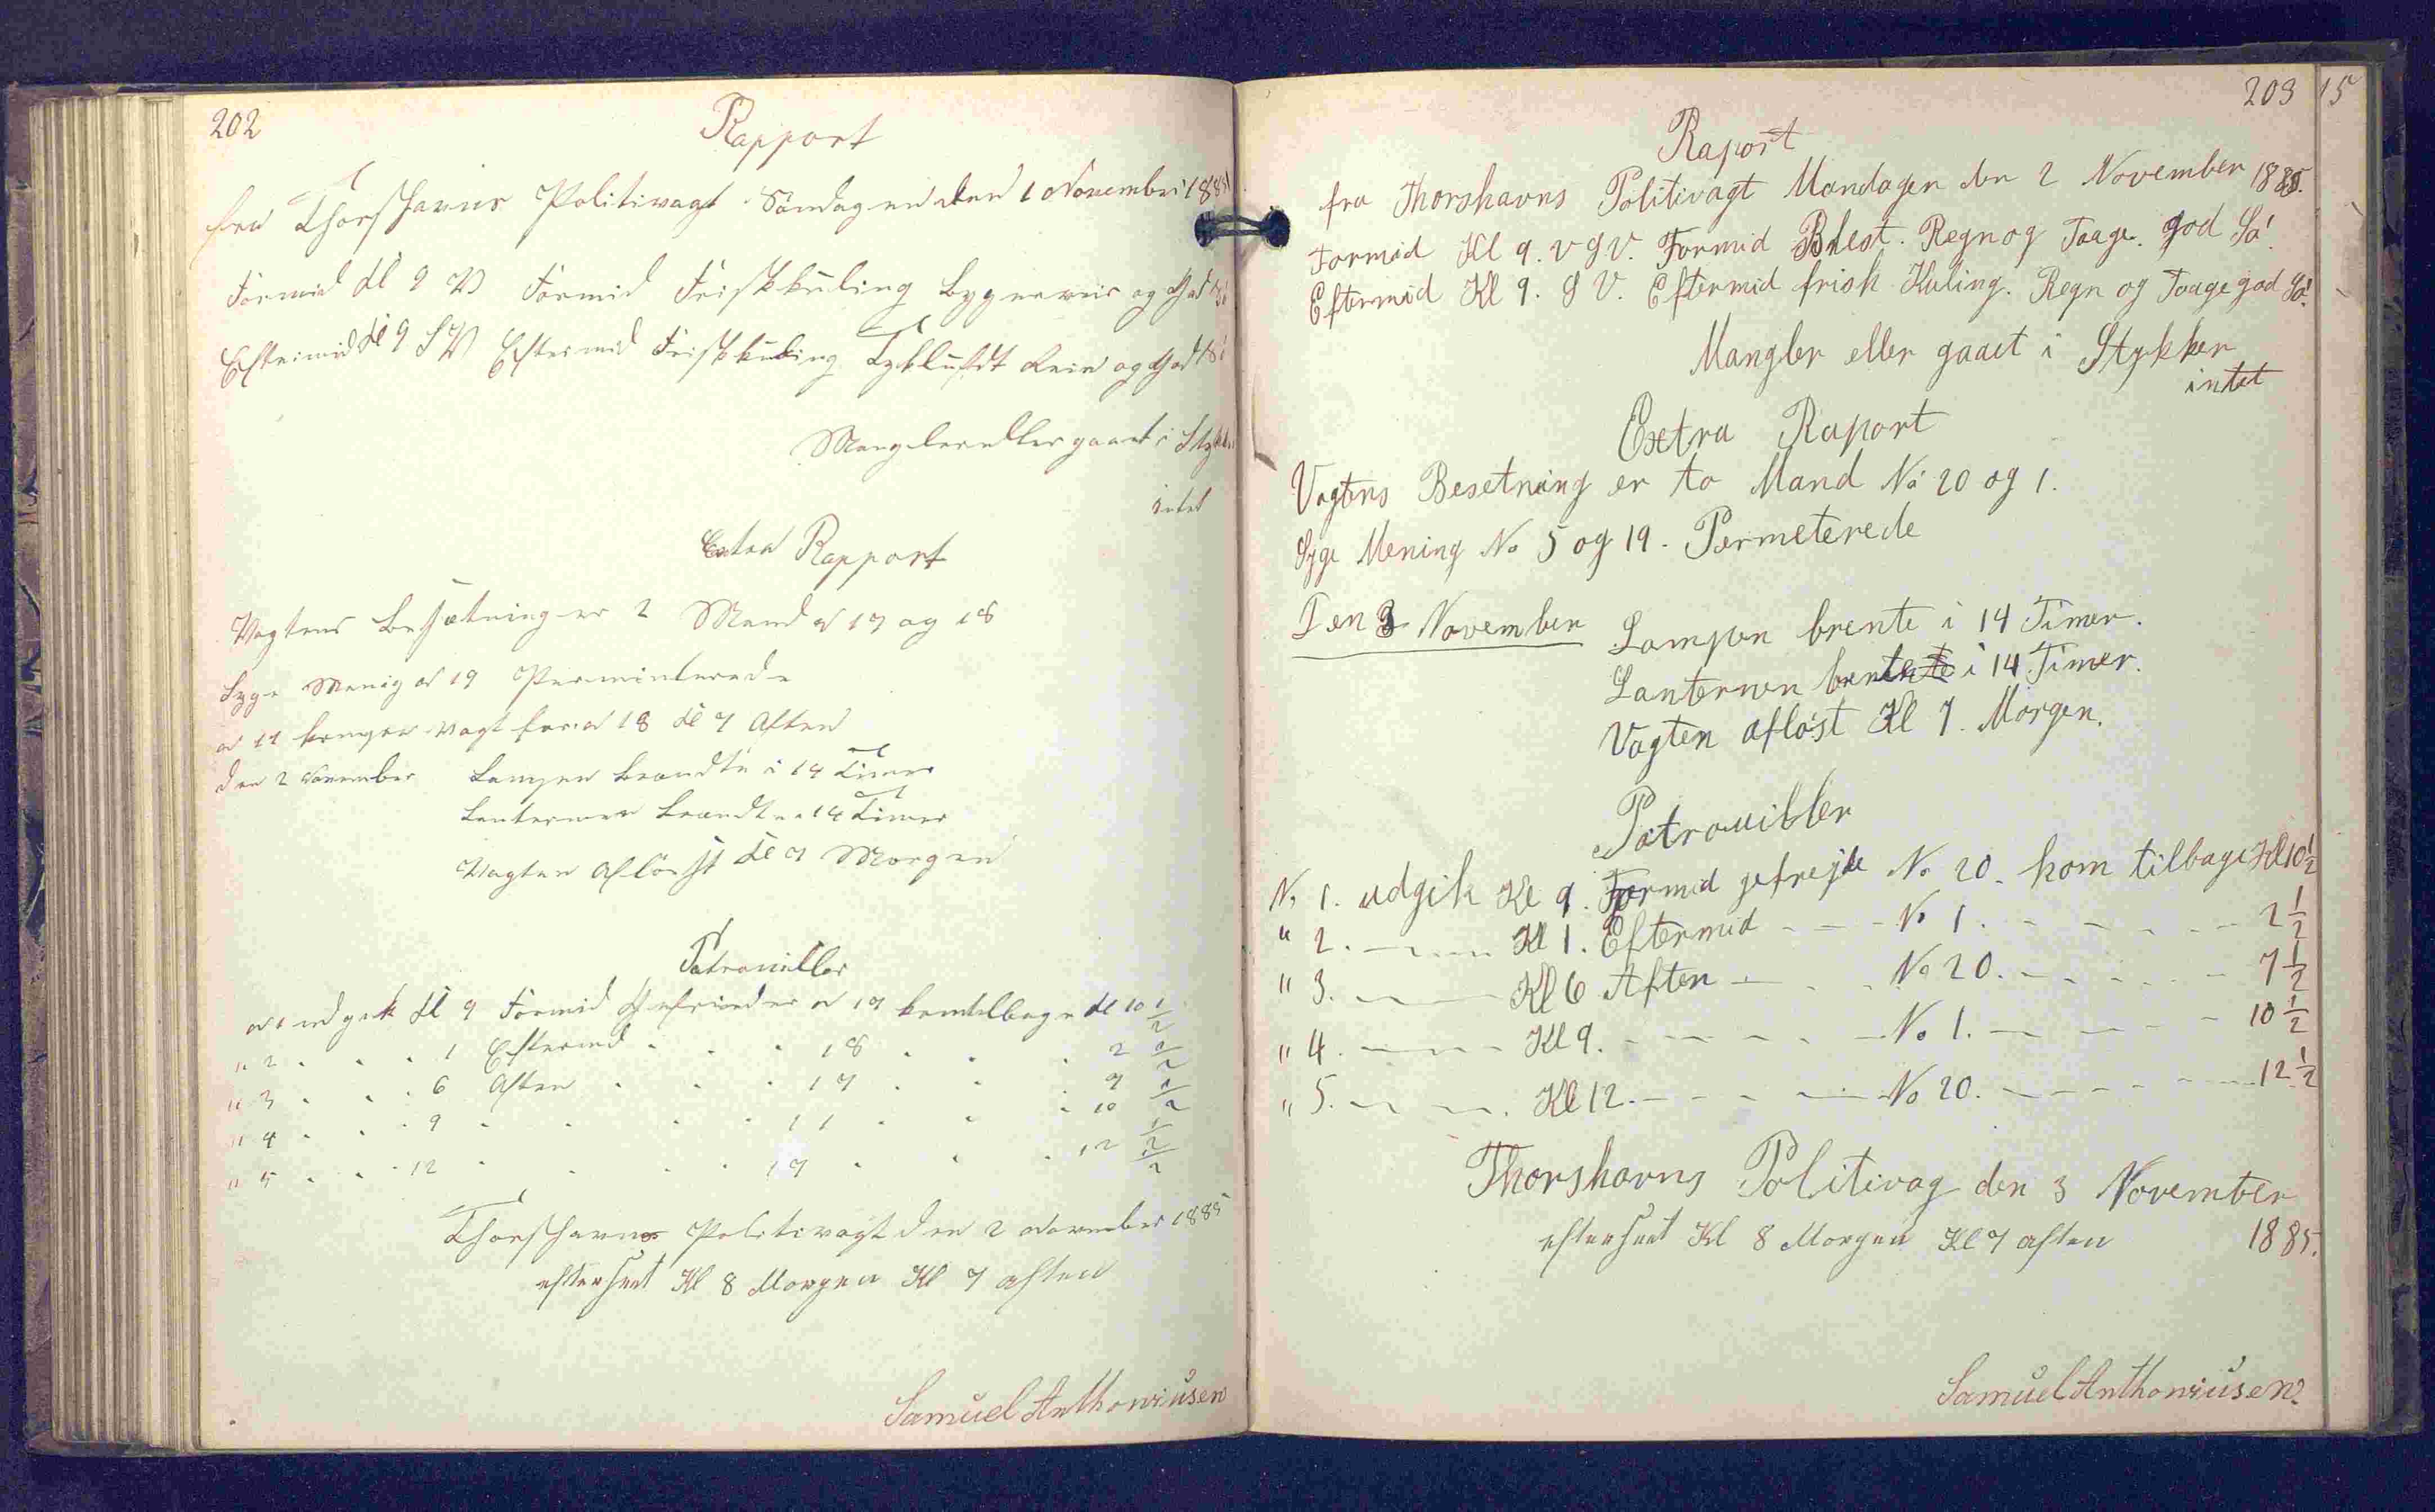 202
Rapport
fra Thorshavns Politivagt Söndagen den 1 November 1885
Formid Kl 9 V Formid Friskkuling Bygeveir og God Sö
Eftermid Kl 9 SV Eftermid Friskkuling Tykluft Rein og God Sö
Mangler eller gaaet i Stykker
intet
Extra Rapport
Vagtens Besætning er 2 Mand N 17 og 18
Syge Menig N 19 Perminterede
N 11 kommer Vagt for N 18 Kl 7 Aften
Den 2 November Lampen brændte i 14 Timer
Lanternen brændte i 14 Timer
Vagten Aflöst Kl 7 Morgen
Patrouiller
N 1 udgik Kl 9 Formid Gefreider N 17 kom tilbage Kl 10 1/2
" 2 . . . 1 Eftermid . . . 18 . . . 2 1/2
" 3 . . . 6 Aften . . . 17 . . . 7 1/2
" 4 . . . 9 . . . . 11 . . . 10 1/2
" 5 . . . 12 . . . . 17 . . . 12 1/2
Thorshavns Politivagt den 2 November 1885
efterseet Kl 8 Morgen Kl 7 aften
Samuel Anthoniusen
203
15
Raport
fra Thorshavns Politivagt Mandagen den 2 November 1885.
Formid Kl 9. V S V. Formid Blest. Regn og Taage. god Sö.
Eftermid Kl 9. S V. Eftermid frisk Kuling. Regn og Taage god Sö.
Mangler eller gaaet i Stykker
intet
Extra Raport
Vagtens Besetning er to Mand No 20 og 1.
Syge Mening No 5 og 19. Permeterede
Den 3 November Lampen brente i 14 Timer.
Lanternen brente i 14 Timer.
Vagten aflöst Kl 7. Morgen.
Patrouiller
No 1. udgik Kl 9. Formid gefrejde No 20. kom tilbage Kl 10 1/2
" 2. - - - Kl 1. Eftermid - - - No 1. - - - - - 2 1/2
" 3. - - - Kl 6 Aften - - - No 20. - - - - - 7 1/2
" 4. - - - Kl 9. - - - - - No 1. - - - - - 10 1/2
" 5. - - - Kl 12. - - - - - No 20. - - - - - 12 1/2
Thorshavns Politivag den 3 November
1885.
efterseet Kl 8 Morgen Kl 7 aften
Samuel Anthoniusen.